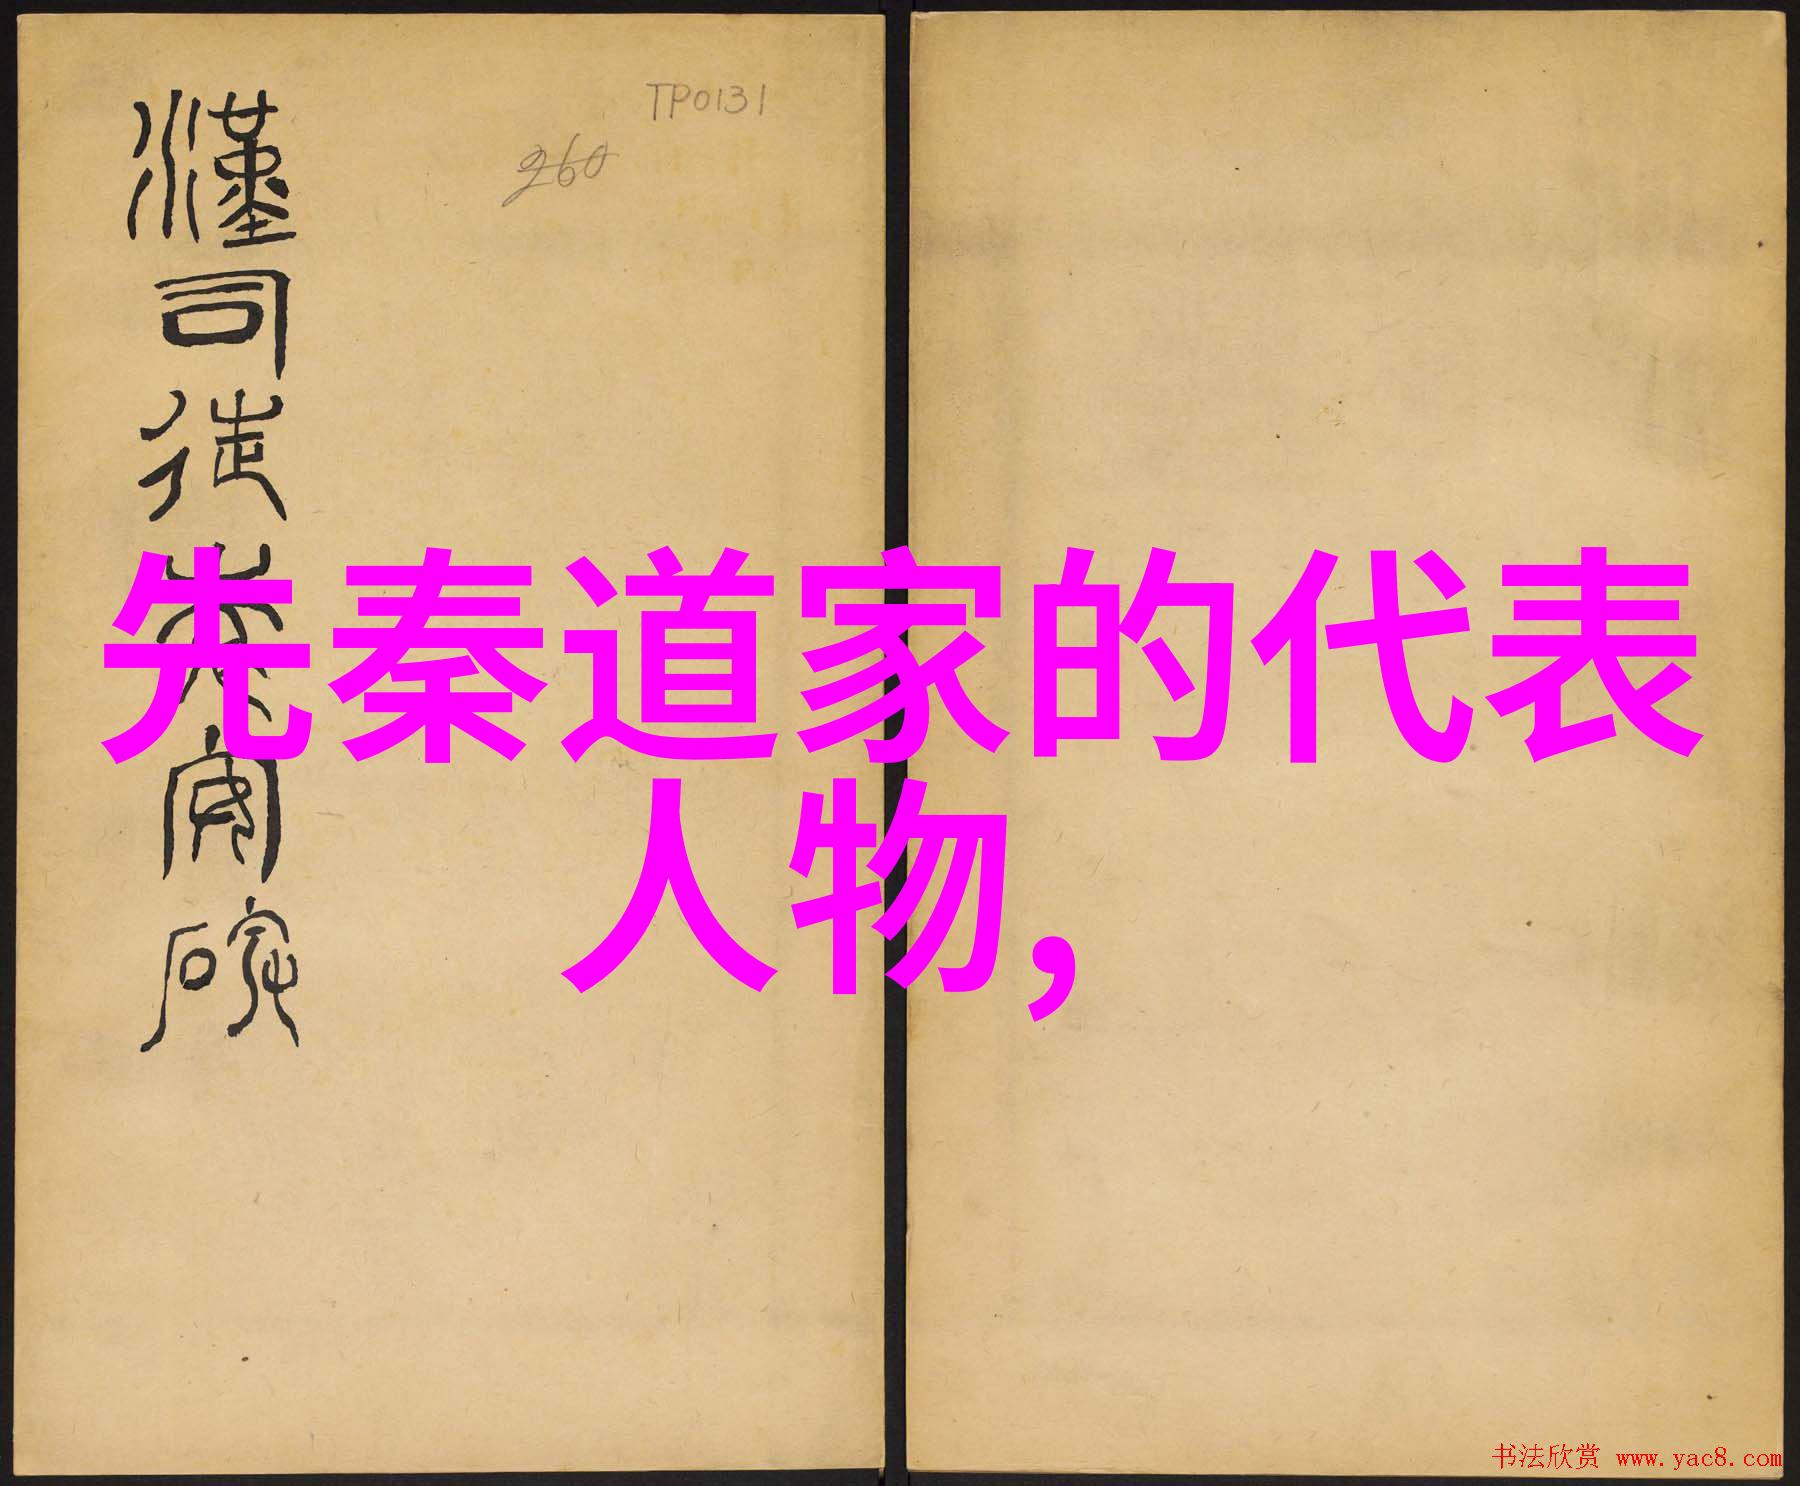 TP0131
260
漢司徒袁安碑
先秦道家的代表
人物,
书法欣赏 www.yac8.com